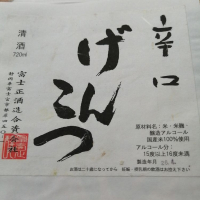 辛口
げんこつ
清酒
720ml
富士正酒造合資会社
原材料名:米・米麹・
醸造アルコール
国産米100%使用
アルコール分:
15度以上16度未満
製造年月
お酒は二十歳になってから